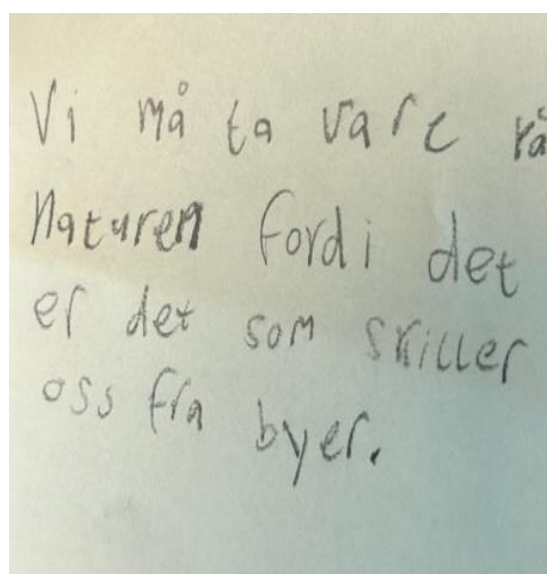 Vi må ta vare på
Naturen fordi det
er det som skiller
oss fra byer.